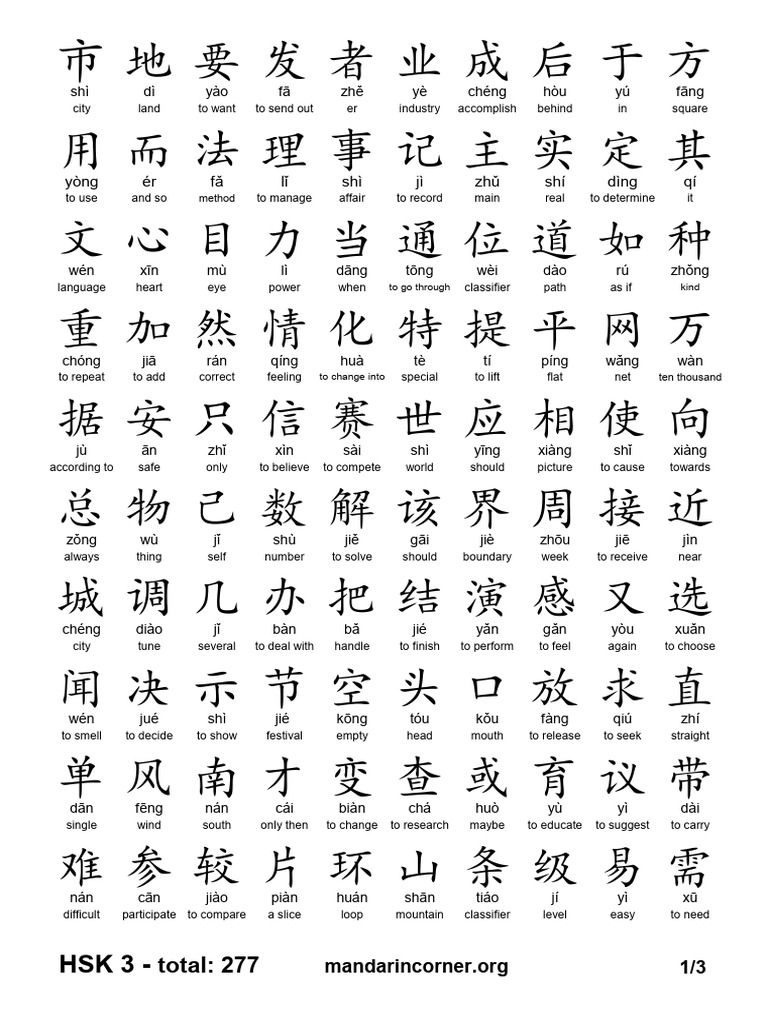 市 地 要 发 者 业 成 后 于 方
shì dì yào fā zhě yè chéng hòu yú fāng
city land to want to send out er industry accomplish behind in square
用 而 法 理 事 记 主 实 定 其
yòng ér fǎ lǐ shì jì zhǔ shí dìng qí
to use and so method to manage affair to record main real to determine it
文 心 目 力 当 通 位 道 如 种
wén xīn mù lì dāng tōng wèi dào rú zhǒng
language heart eye power when to go through classifier path as if kind
重 加 然 情 化 特 提 平 网 万
chóng jiā rán qíng huà tè tí píng wǎng wàn
to repeat to add correct feeling to change into special to lift flat net ten thousand
据 安 只 信 赛 世 应 相 使 向
jù ān zhǐ xìn sài shì yīng xiàng shǐ xiàng
according to safe only to believe to compete world should picture to cause towards
总 物 己 数 解 该 界 周 接 近
zǒng wù jǐ shù jiě gāi jiè zhōu jiē jìn
always thing self number to solve should boundary week to receive near
城 调 几 办 把 结 演 感 又 选
chéng diào jǐ bàn bǎ jié yǎn gǎn yòu xuǎn
city tune several to deal with handle to finish to perform to feel again to choose
闻 决 示 节 空 头 口 放 求 直
wén jué shì jié kōng tóu kǒu fàng qiú zhí
to smell to decide to show festival empty head mouth to release to seek straight
单 风 南 才 变 查 或 育 议 带
dān fēng nán cái biàn chá huò yù yì dài
single wind south only then to change to research maybe to educate to suggest to carry
难 参 较 片 环 山 条 级 易 需
nán cān jiào piàn huán shān tiáo jí yì xū
difficult participate to compare a slice loop mountain classifier level easy to need
HSK 3 - total: 277 mandarincorner.org 1/3